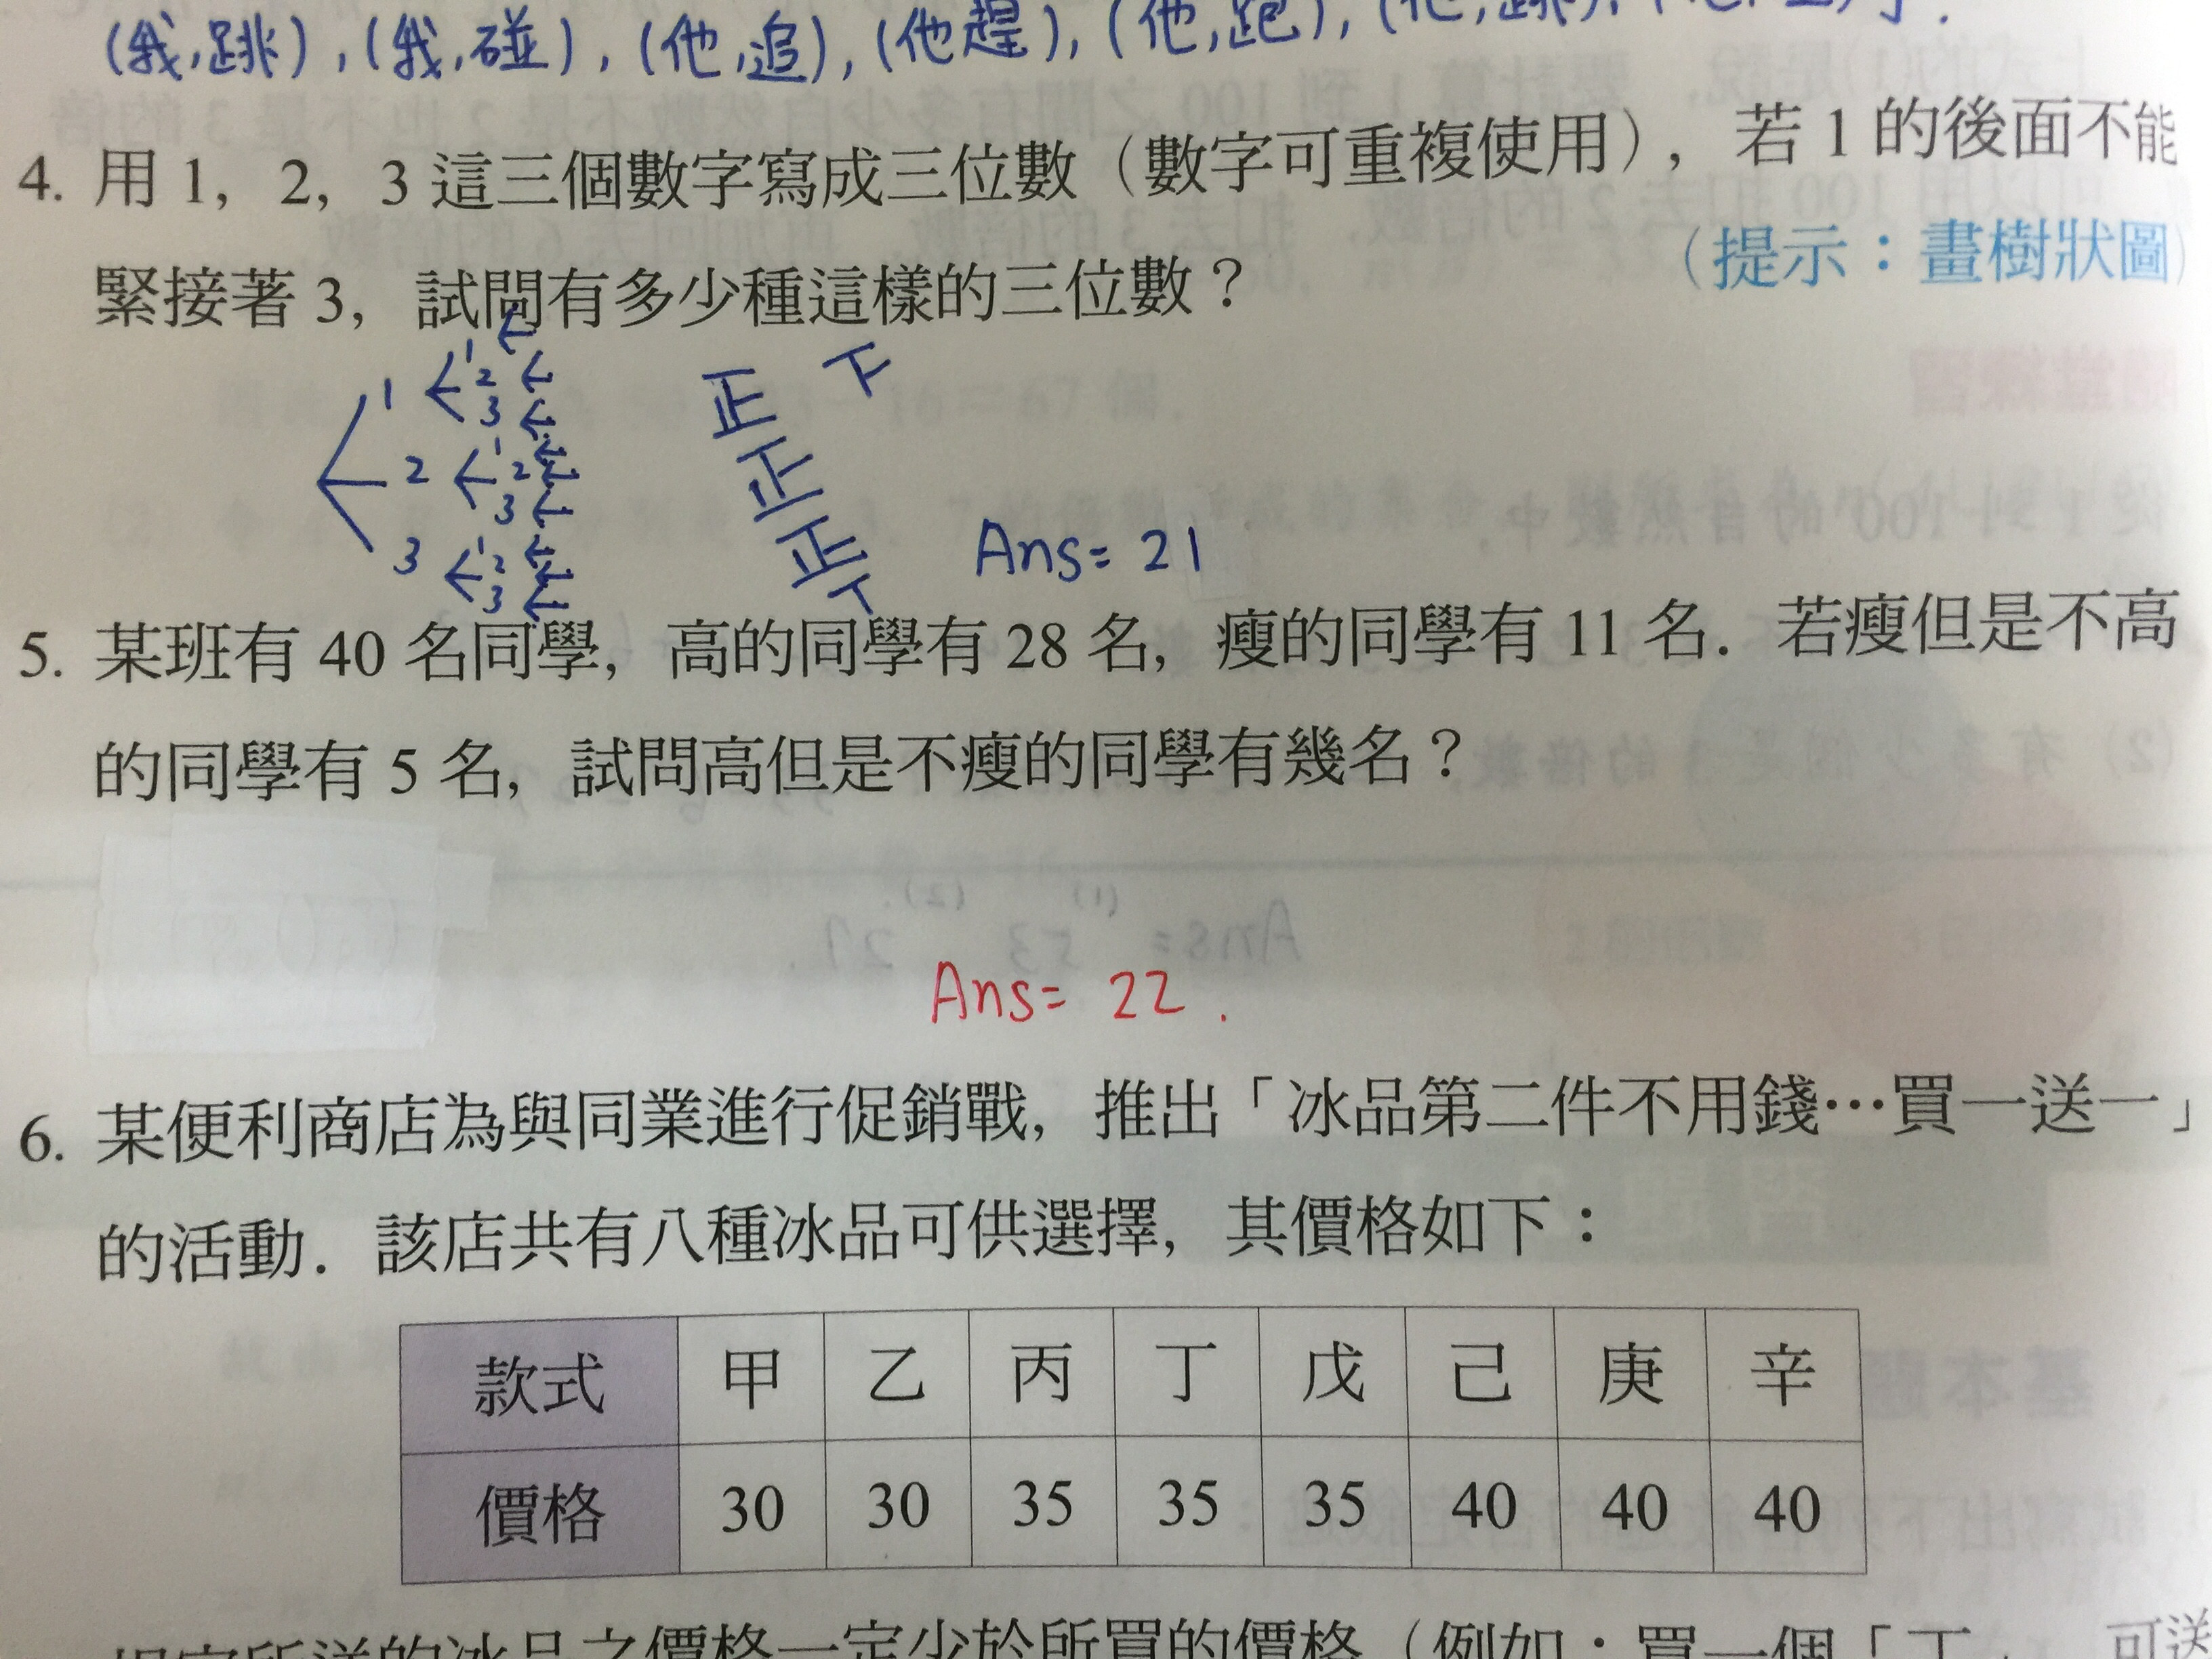 (我,跳),(我,碰),(他,追),(他趕),(他,跑),(他,跳),
4. 用 1，2，3 這三個數字寫成三位數（數字可重複使用），若 1 的後面不能
緊接著 3，試問有多少種這樣的三位數？
（提示：畫樹狀圖）
1
1
2
3
2
1
2
3
3
1
2
3
正
正
正
下
Ans= 21
5. 某班有 40 名同學，高的同學有 28 名，瘦的同學有 11 名．若瘦但是不高
的同學有 5 名，試問高但是不瘦的同學有幾名？
Ans= 22.
6. 某便利商店為與同業進行促銷戰，推出「冰品第二件不用錢…買一送一」
的活動．該店共有八種冰品可供選擇，其價格如下：
款式 甲 乙 丙 丁 戊 己 庚 辛
價格 30 30 35 35 35 40 40 40
規定所送的冰品之價格一定少於所買的價格（例如：買一個「丁」，可送